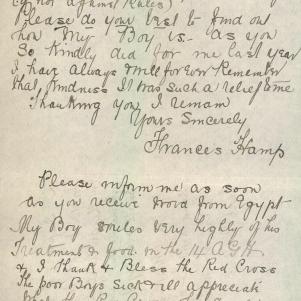 (if not against Rules)
Please do your best to find out
how My Boy is - as you
So Kindly did for me last year
I have always & will for Ever Remember
that Kindness It was such a relief to me
Thanking you I remain
Yours Sincerely
Frances Hamp
Please inform me as soon
as you receive word from Egypt
My Boy writes very highly of his
Treatment & food in the 14 A.G.H
& I thank & Bless the Red Cross
The poor Boys Sick & ill appreciate